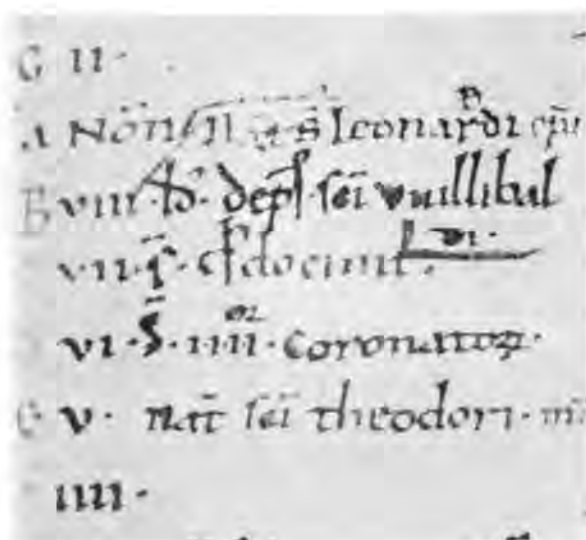 G II·
A NON̄ S̄ Leonardi ep̄i
B VIII·ID̄· dep̄ sc̄i vuillibal
di·
VII·
VI·S̄·IIII·coronatoꝝ·
e V· nat̄ sc̄i theodori· m̄
IIII·